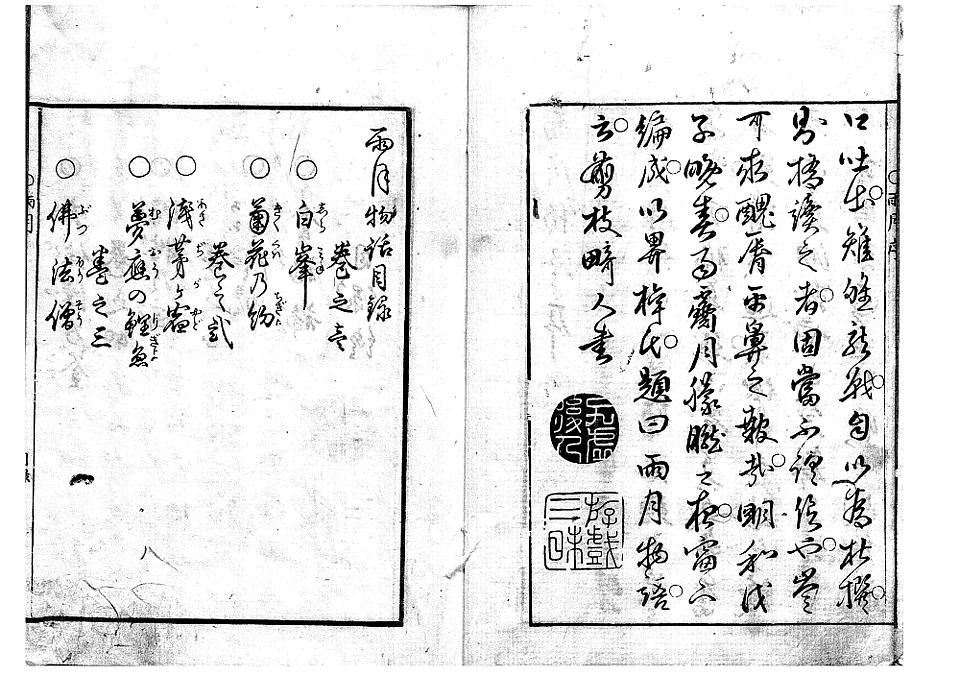 口吐出。雉雊龍戰。自以為杜撰。
則摘讀之者。固當不謂信也。豈
可求醜脣平鼻之報哉。明和戊
子晩春。雨霽月朦朧之夜。窗下
編成。以畀梓氏。題曰雨月物語。
云。剪枝畸人書
子虚後人
遊戲三昧
雨月物語目録
巻之壱
○白峯
○菊花乃約
巻之弐
○淺茅が宿
○夢應の鯉魚
巻之三
○佛法僧